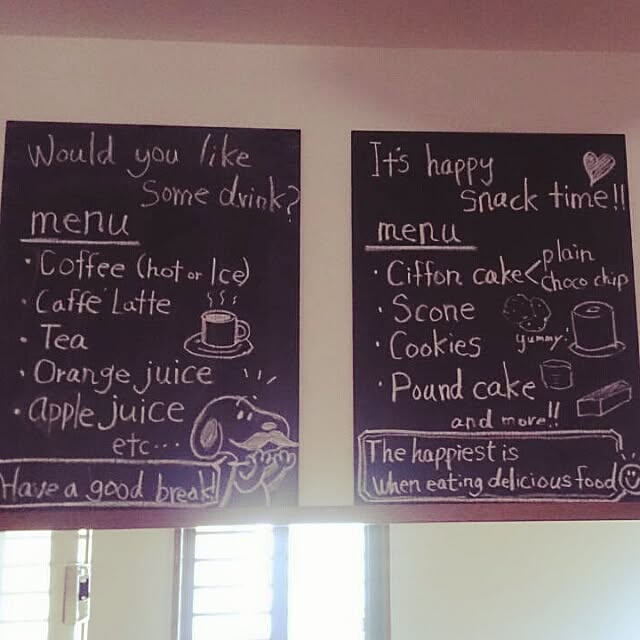 Would you like
Some drink?
menu
・Coffee (hot or Ice)
・Caffé Latte
・Tea
・Orange juice
・apple juice
etc...
Have a good break!
It's happy
snack time!!
menu
・Ciffon cake < plain
choco chip
・Scone
・Cookies
yummy!
・Pound cake
and more!!
The happiest is
when eating delicious food